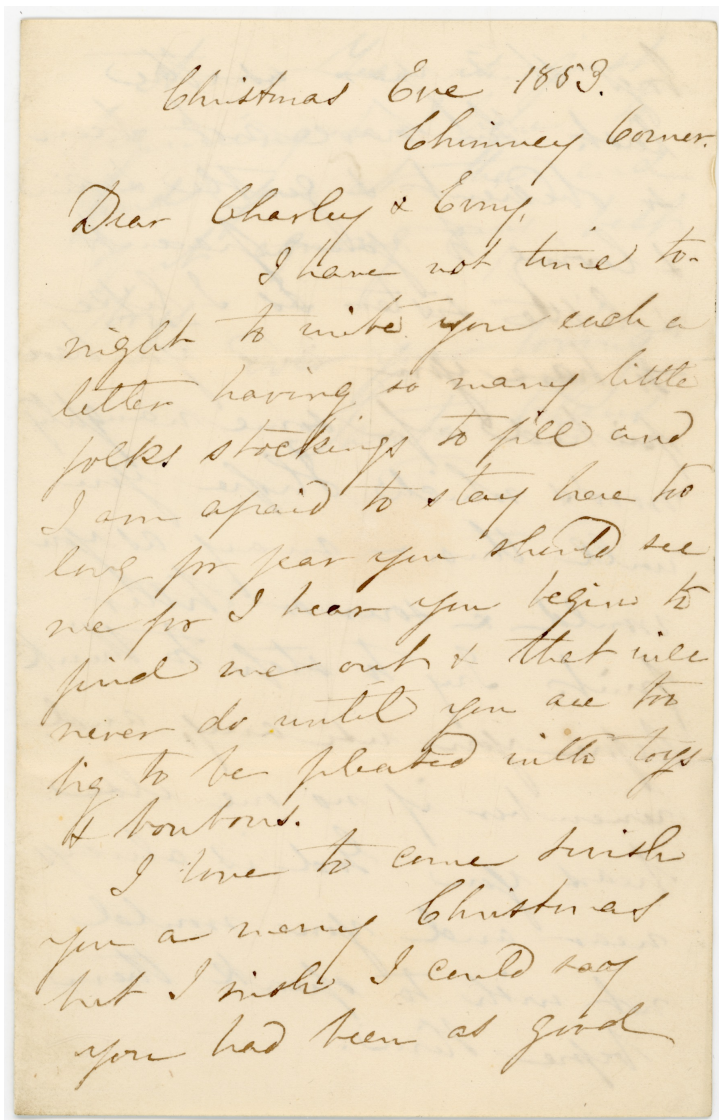 Christmas Eve 1853.
Chimney Corner.
Dear Charley & Emy,
I have not time to-
night to write you each a
letter having so many little
folks stockings to fill and
I am afraid to stay here too
long for fear you should see
me for I hear you begin to
find me out & that will
never do until you are too
big to be pleased with toys
& bonbons.
I love to come & wish
you a merry Christmas
but I wish I could say
you had been as good